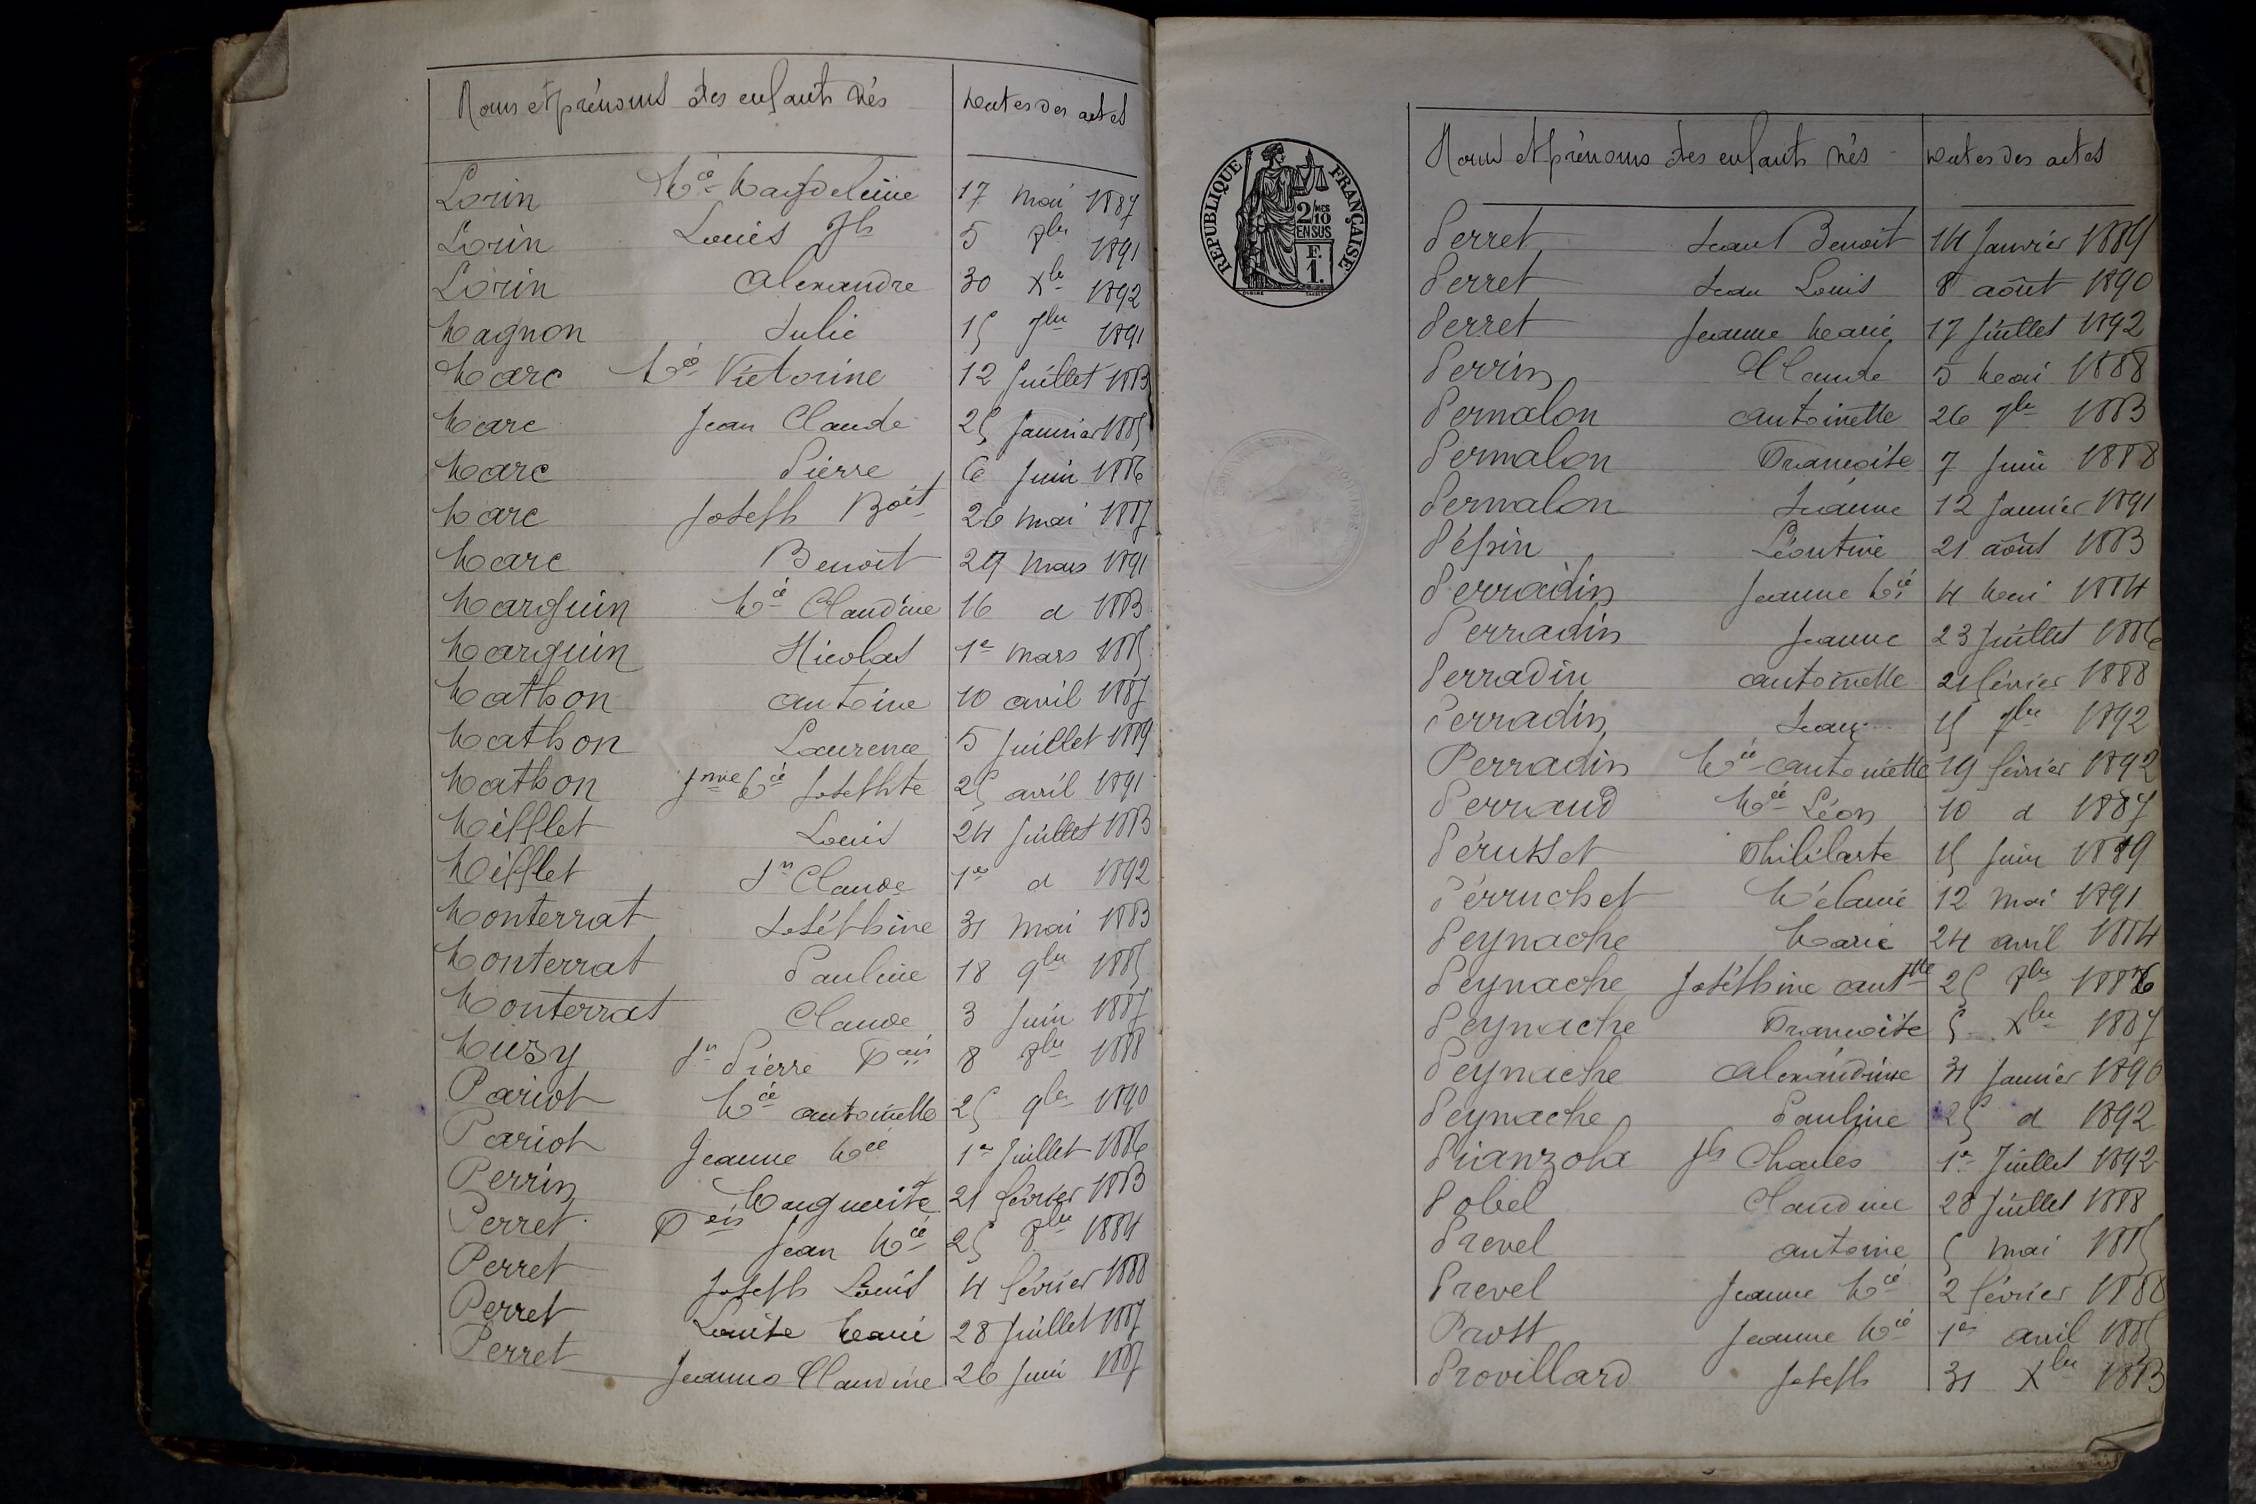 Noms et prénoms des enfants nés Dates des actes
Lorin Mie Magdeleine 17 mai 1887
Lorin Louis Jh 5 8bre 1891
Lorin Alexandre 30 Xbre 1892
Magnon Julie 15 7bre 1891
Marc Mie Victorine 12 Juillet 1883
Marc Jean Claude 25 Janvier 1885
Marc Pierre 6 Juin 1886
Marc Joseph Boit 26 mai 1887
Marc Benoît 29 mars 1891
Marguin Mie Claudine 16 d 1883
Marguin Nicolas 1er mars 1885
Mathon Antoine 10 avril 1887
Mathon Laurence 5 Juillet 1889
Mathon Jnne Mie Josephte 25 avril 1891
Mifflet Louis 24 Juillet 1883
Mifflet Jn Claude 1er d 1892
Monterrat Joséphine 31 mai 1883
Monterrat Pauline 18 9bre 1885
Monterrat Claude 3 Juin 1887
Muzy Jn Pierre Fçois 8 8bre 1888
Pariot Mie Antoinette 25 9bre 1890
Pariot Jeanne Mie 1er Juillet 1886
Perrin Marguerite 21 février 1883
Perret Fçois Jean Mie 25 8bre 1884
Perret Joseph Louis 4 février 1888
Perret Louise Marie 28 Juillet 1887
Perret Jeanne Claudine 26 Juin 1887
RÉPUBLIQUE FRANÇAISE
2/10 MES
EN SUS
F.
1.
Noms et prénoms des enfants nés Dates des actes
Perret Jean Benoit 14 Janvier 1889
Perret Jean Louis 8 août 1890
Perret Jeanne Marie 17 Juillet 1892
Perrin Claude 5 Mai 1888
Pernalon Antoinette 26 7bre 1883
Pernalon Françoise 7 Juin 1888
Pernalon Jeanne 12 Janvier 1891
Pépin Léontine 21 août 1883
Perradin Jeanne Mie 4 Mai 1884
Perradin Jeanne 23 Juillet 1886
Perradin Antoinette 21 février 1888
Perradin Jean 15 7bre 1892
Perradin Mie Antoinette 19 février 1892
Perraud Mie Léon 10 d 1887
Pérusset Philiberte 15 Juin 1889
Pérruchet Mélanie 12 mai 1891
Peynache Marie 24 avril 1884
Peynache Joséphine Anttte 25 8bre 1886
Peynache Françoise 5 Xbre 1887
Peynache Alexandrine 31 Janvier 1890
Peynache Pauline 25 d 1892
Pianzola Jh Charles 1er Juillet 1892
Pobel Claudine 28 Juillet 1888
Prevel Antoine 5 mai 1885
Prevel Jeanne Mie 2 février 1888
Prost Jeanne Mie 1er avril 1885
Provillard Joseph 31 Xbre 1883